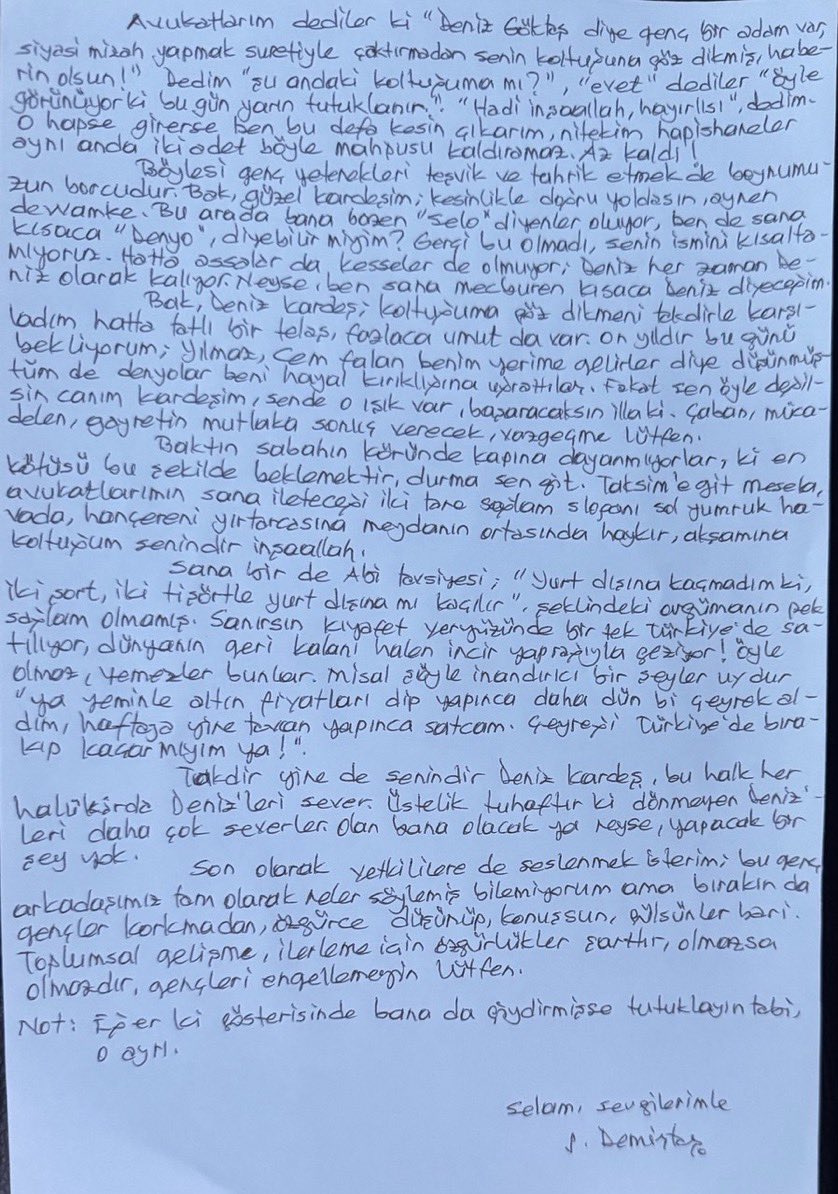 Avukatlarım dediler ki "Deniz Göktaş diye genç bir adam var,
siyasi mizah yapmak suretiyle çaktırmadan senin koltuğuna göz dikmiş, habe-
rin olsun!" Dedim "şu andaki koltuğuma mı?", "evet" dediler "öyle
görünüyor ki bugün yarın tutuklanır." "Hadi inşaallah, hayırlısı", dedim.
O hapse girerse ben bu defa kesin çıkarım, nitekim hapishaneler
aynı anda iki adet böyle mahpusu kaldıramaz. Az kaldı!
Böylesi genç yetenekleri teşvik ve tahrik etmek de boynumu-
zun borcudur. Bak, güzel kardeşim; kesinlikle doğru yoldasın, aynen
dewamke. Bu arada bana bazen "Selo" diyenler oluyor, ben de sana
kısaca "Denyo", diyebilir miyim? Gerçi bu olmadı, senin ismini kısalta-
mıyoruz. Hatta assalar da kesseler de olmuyor; Deniz her zaman De-
niz olarak kalıyor. Neyse, ben sana mecburen kısaca Deniz diyeceğim.
Bak, Deniz kardeş; koltuğuma göz dikmeni takdirle karşı-
ladım hatta tatlı bir telaş, fazlaca umut da var. On yıldır bu günü
bekliyorum; Yılmaz, Cem falan benim yerime gelirler diye düşünmüş-
tüm de denyolar beni hayal kırıklığına uğrattılar. Fakat sen öyle değil-
sin canım kardeşim, sende o ışık var, başaracaksın illaki. Çaban, müca-
delen, gayretin mutlaka sonuç verecek, vazgeçme lütfen.
Baktın sabahın köründe kapına dayanmıyorlar, ki en
kötüsü bu şekilde beklemektir, durma sen git. Taksim'e git mesela,
avukatlarımın sana ileteceği iki tane sağlam sloganı sol yumruk ha-
vada, hançereni yırtarcasına meydanın ortasında haykır, akşamına
koltuğum senindir inşaallah.
Sana bir de Abi tavsiyesi; "Yurt dışına kaçmadım ki,
iki şort, iki tişörtle yurt dışına mı kaçılır", şeklindeki argümanın pek
sağlam olmamış. Sanırsın kıyafet yeryüzünde bir tek Türkiye'de sa-
tılıyor, dünyanın geri kalanı halen incir yaprağıyla geziyor! Öyle
olmaz, yemezler bunlar. Misal şöyle inandırıcı bir şeyler uydur
"ya yeminle altın fiyatları dip yapınca daha dün bi çeyrek al-
dım, haftaya yine tavan yapınca satcam. Çeyreği Türkiye'de bıra-
kıp kaçar mıyım ya!".
Takdir yine de senindir Deniz kardeş, bu halk her
halükarda Deniz'leri sever. Üstelik tuhaftır ki dönmeyen Deniz'-
leri daha çok severler. Olan bana olacak ya neyse, yapacak bir
şey yok.
Son olarak yetkililere de seslenmek isterim; bu genç
arkadaşımız tam olarak neler söylemiş bilemiyorum ama bırakın da
gençler korkmadan, özgürce düşünüp, konuşsun, gülsünler bari.
Toplumsal gelişme, ilerleme için özgürlükler şarttır, olmazsa
olmazdır, gençleri engellemeyin lütfen.
Not: Eğer ki gösterisinde bana da giydirmişse tutuklayın tabi,
o ayrı.
Selam, sevgilerimle
S. Demirtaş